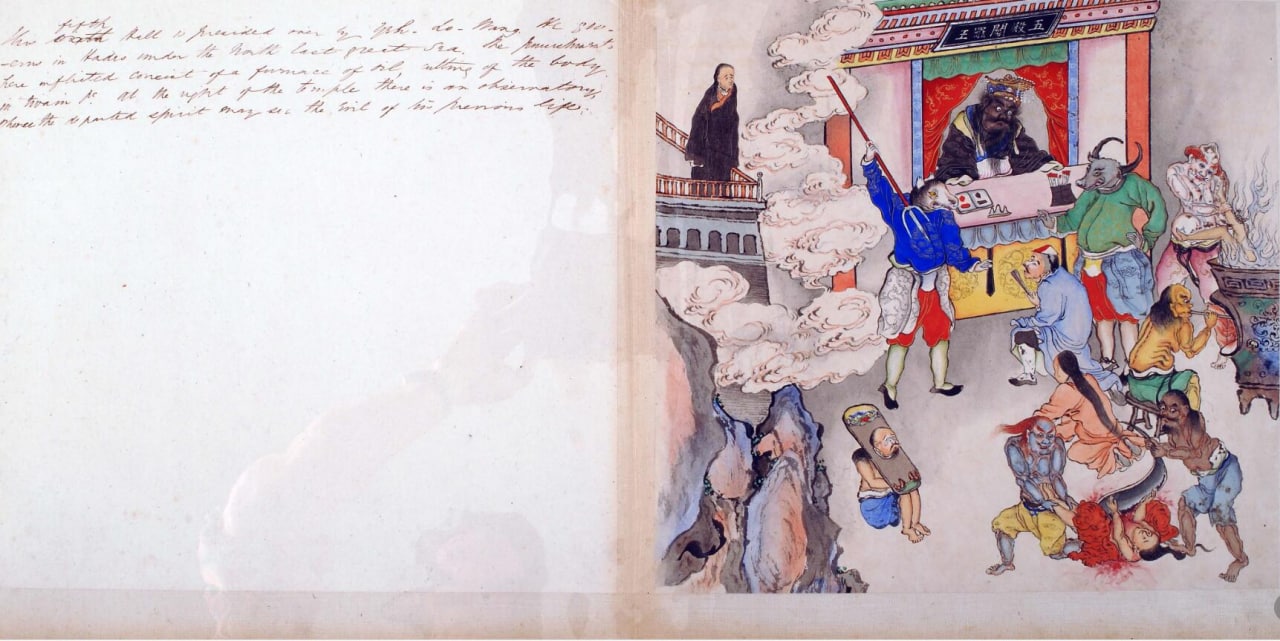 fifth
This Hall is presided over by Yeh-lo-Wang the gov-
-erns in Hades under the North East great Sea, the punishments
here inflicted consist of a furnace of oil, cutting of the body
in twain &c. At the right of the temple there is an observatory,
whence the departed spirit may see the evil of his previous life.
五殿閻羅王